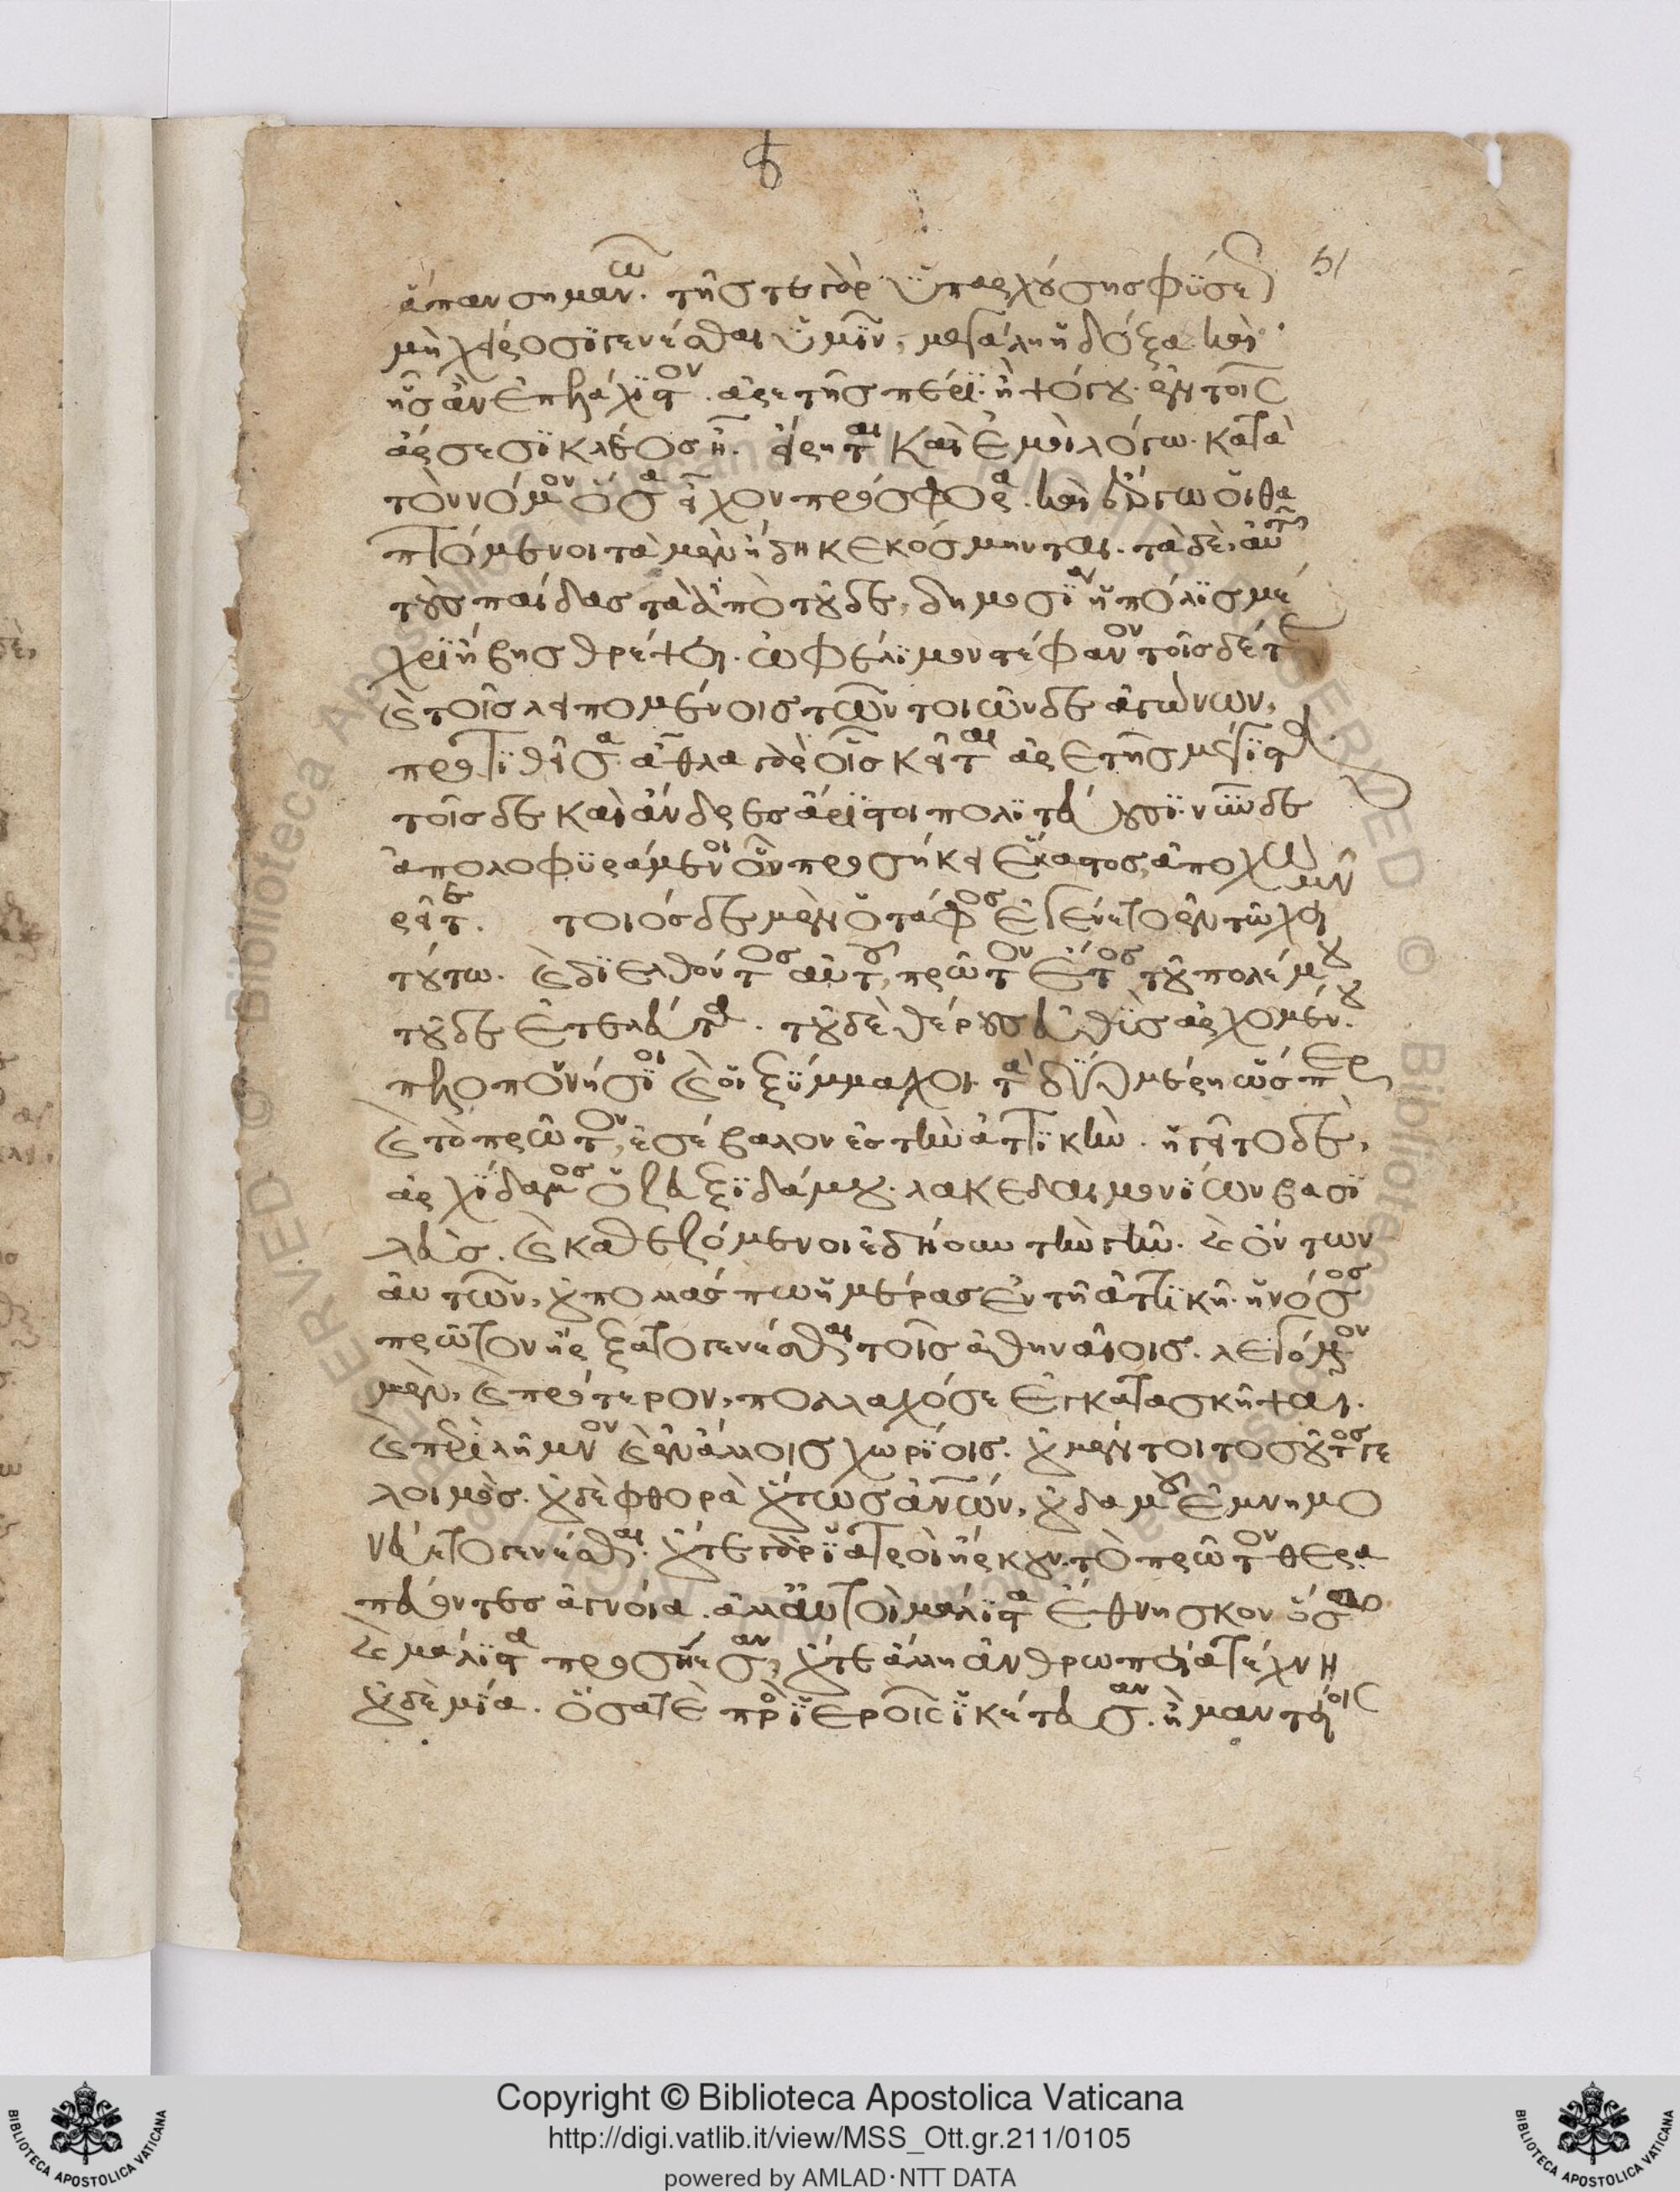 51
ἅπαν σημανῶ. τῆς τε γὰρ ὑπαρχούσης φύσε
μὴ χείροσι γενέσθαι ὑμῖν, μεγάλη ἡ δόξα καὶ
ἧς ἂν ἐπ' ἐλάχιστον ἀρετῆς πέρι ἢ ψόγου ἐν τοῖς
ἄρσεσι κλέος ᾖ. εἴρηται καὶ ἐμοὶ λόγω κατὰ
τὸν νόμον ὅσα εἶχον πρόσφορα. καὶ ἔργω οἱ θα
πτόμενοι τὰ μὲν ἤδη κεκόσμηνται. τὰ δὲ, αὐτῶν
τοὺς παῖδας τὰ ἀπὸ τοῦδε, δημοσία ἡ πόλις μέ
χρι ἥβης θρέψει. ὠφέλιμον στέφανον τοῖσδέ τε
καὶ τοῖς λειπομένοις τῶν τοιῶνδε ἀγώνων,
προτιθεῖσα. ἆθλα γὰρ οἷς κεῖται ἀρετῆς μέγιστα
τοῖσδε καὶ ἄνδρες ἄριστοι πολιτεύουσι. νῦν δὲ
ἀπολοφυράμενοι ὃν προσήκει ἕκαστος, ἀποχω
ρεῖτε. τοιόσδε μὲν ὁ τάφος ἐγένετο ἐν τῶ χει
μῶνι
τούτω. καὶ διελθόντος αὐτοῦ, πρῶτον ἔτος τοῦ πολέμου
τοῦδε ἐτελεύτα. τοῦ δὲ θέρους εὐθὺς ἀρχομένου
πελοποννήσιοι καὶ οἱ ξύμμαχοι τὰ δύο μέρη ὥσπερ
καὶ τὸ πρῶτον, ἐσέβαλον ἐς τὴν ἀττικήν. ἡγεῖτο δὲ,
ἀρχίδαμος ὁ ζευξιδάμου. λακεδαιμονίων βασι
λεύς. καὶ καθεζόμενοι ἐδήουν τὴν γῆν. καὶ ὄντων
αὐτῶν, οὐ πολλάς πω ἡμέρας ἐν τῆ ἀττικῆ. ἡ νόσος
πρῶτον ἤρξατο γενέσθαι τοῖς ἀθηναίοις. λεγόμενον
μὲν, καὶ πρότερον, πολλαχόσε ἐγκατασκῆψαι.
καὶ περὶ λῆμνον καὶ ἐν ἄλλοις χωρίοις. οὐ μέντοι τοσοῦτός γε
λοιμὸς. οὐδὲ φθορὰ οὕτως ἀνθρώπων, οὐδαμοῦ ἐμνημο
νεύετο γενέσθαι. οὔτε γὰρ ἰατροὶ ἤρκουν. τὸ πρῶτον θερα
πεύοντες ἀγνοία. ἀλλ' αὐτοὶ μάλιστα ἔθνησκον ὅσω
καὶ μάλιστα προσῄεσαν, οὔτε ἄλλη ἀνθρωπεία τέχνη
οὐδεμία. ὅσα τὲ πρὸς ἱεροῖς ἱκέτευσαν. ἢ μαντείοις
Copyright © Biblioteca Apostolica Vaticana
http://digi.vatlib.it/view/MSS_Ott.gr.211/0105
powered by AMLAD·NTT DATA